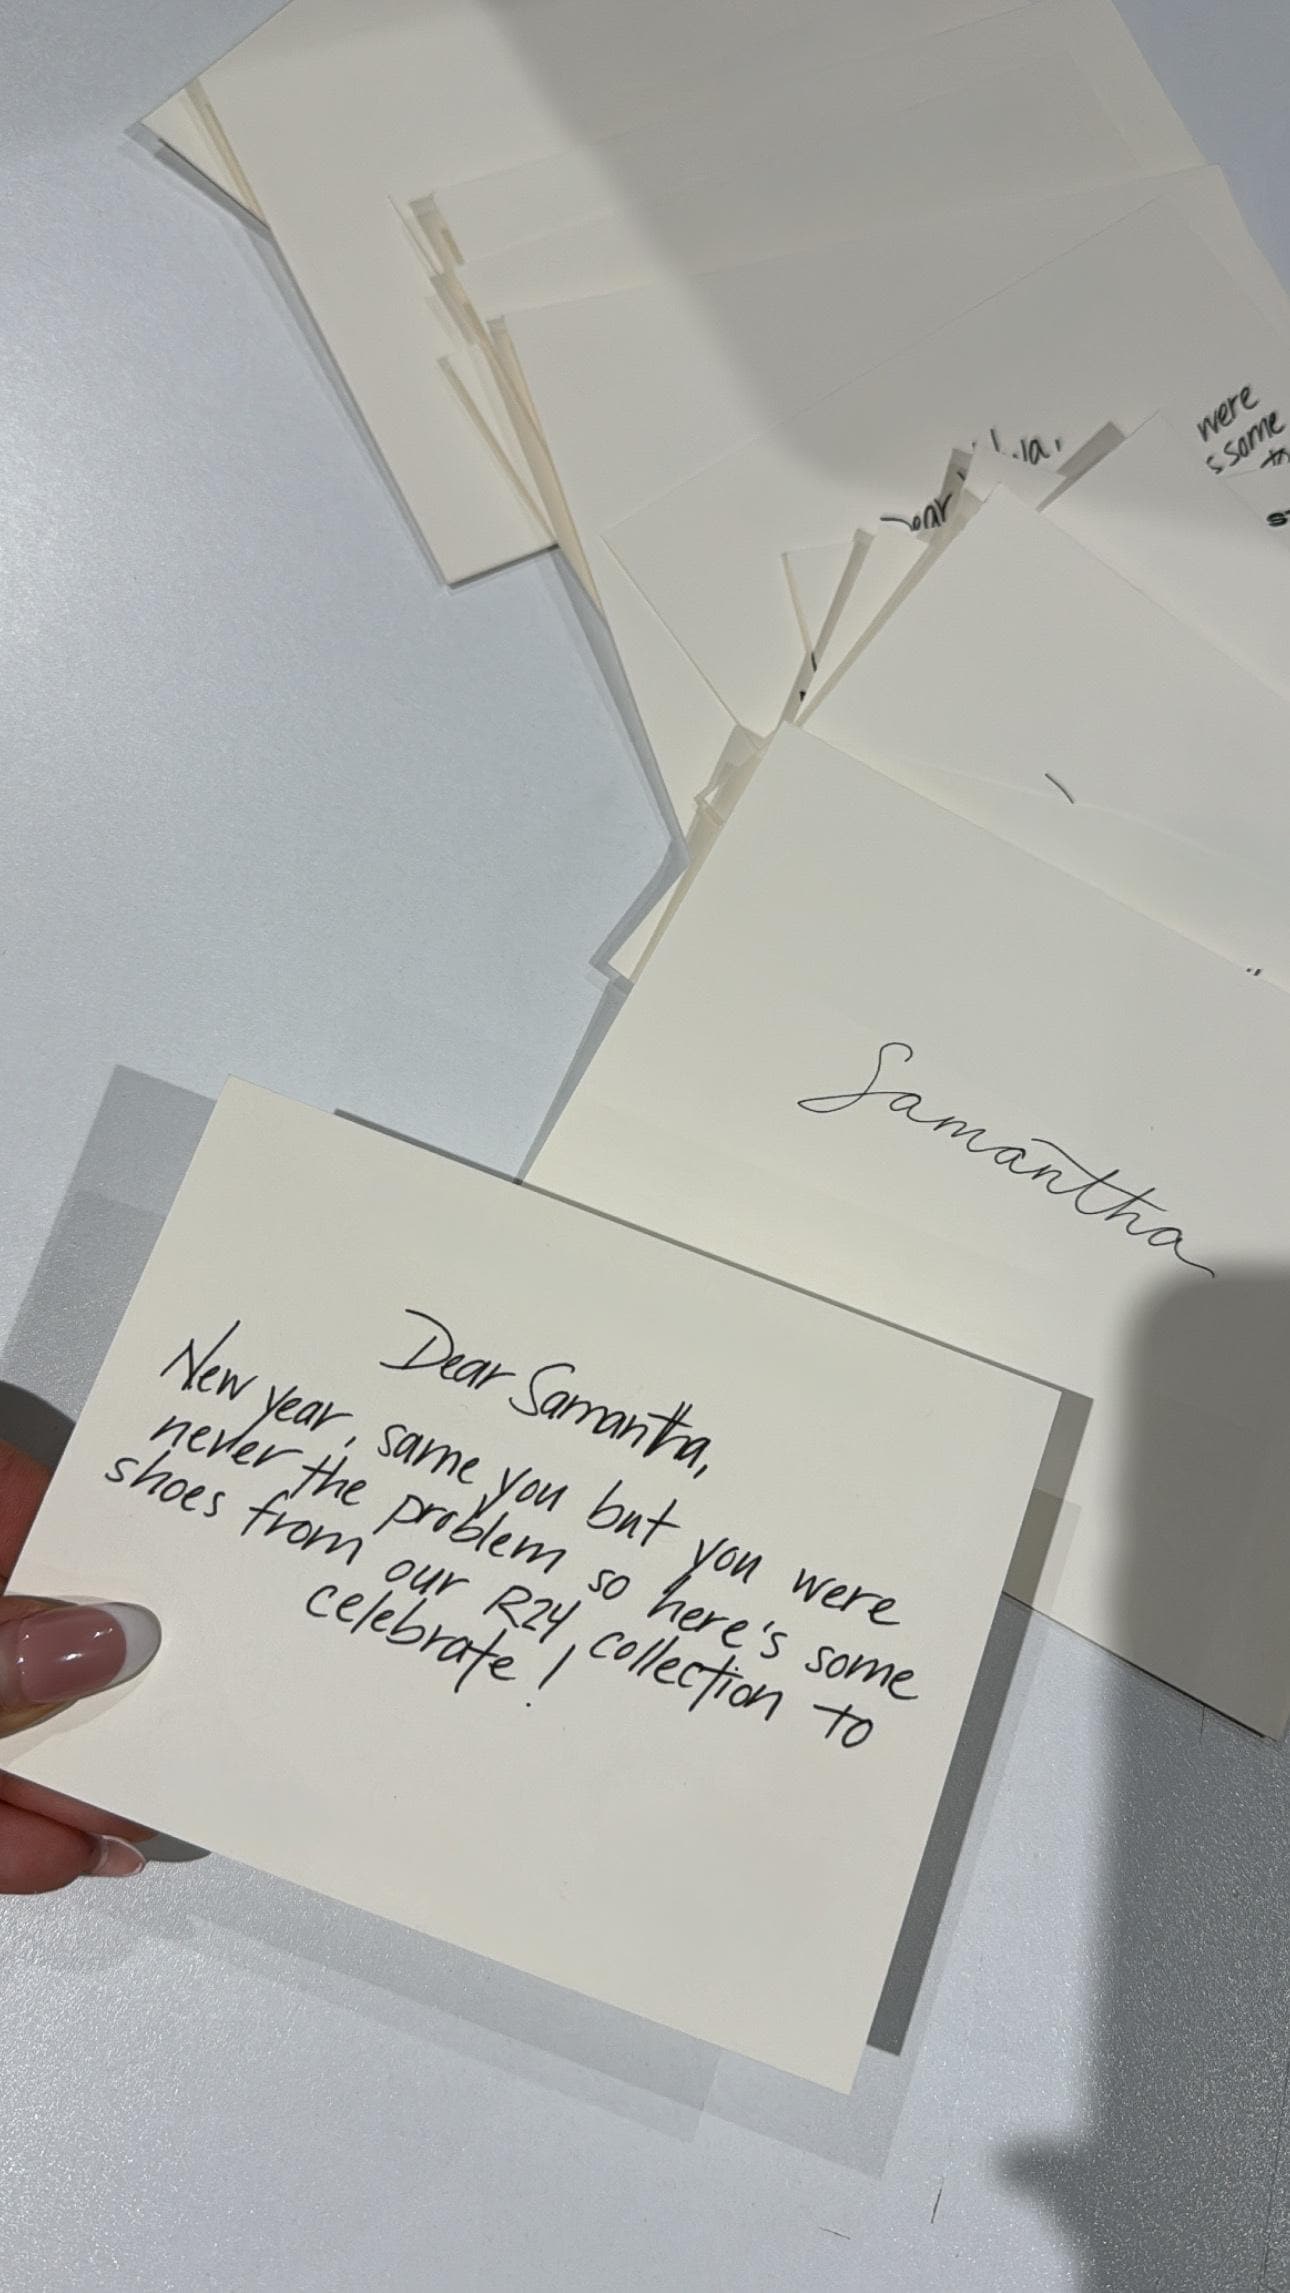 were
some
Dear
Samantha
Dear Samantha,
New year, same you but you were
never the problem so here's some
shoes from our R24 collection to
celebrate!